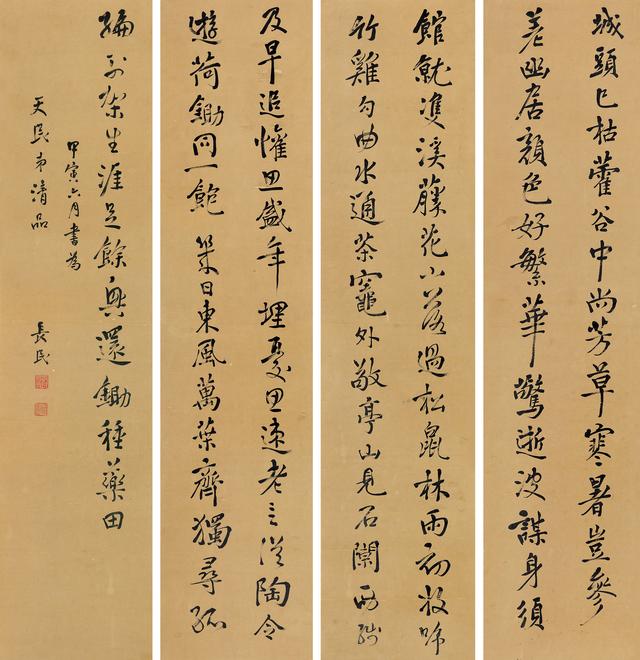 城頭已枯藿谷中尚芳草寒暑豈參
差幽居顏色好繁華驚逝波謀身須
館就雙溪藤花小落過松鼠林雨初收啼
竹雞勾曲水通茶竈外敬亭山見石闌西殘
及早追懽思盛年埋憂思速老言從陶令
遊荷鋤同一飽 日東風萬葉齊獨尋孤
編架生涯足餘興還鋤種藥田
甲寅六月書為
天民弟清品
長民